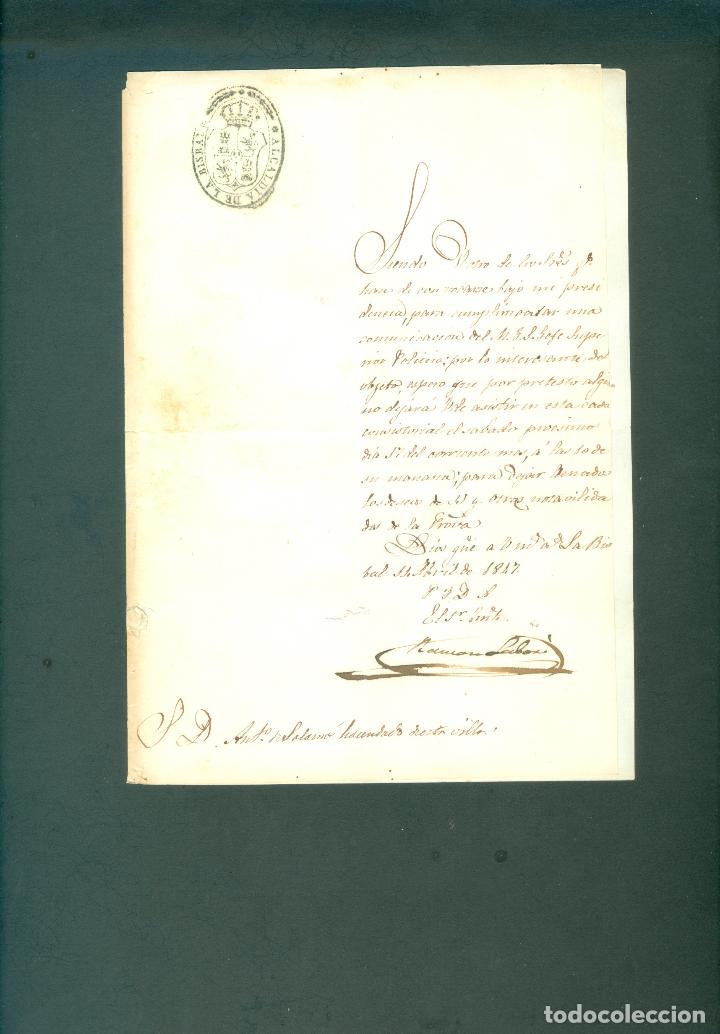 ALCALDIA DE LA BISBAL
Siendo V. uno de los Sres. q.
han de convocarse bajo mi presi
dencia, para cumplimentar una
comunicacion del M. Y. S. Gefe Supe
rior Politico: por lo interesante del
objeto, espero que por pretesto algu
no dejará V. de asistir en esta casa
consistorial el sabado procsimo
dia 17 del corriente mes, á las 10 de
su mañana; para dejar llenado
los deseos de S. S. y otras notavilida
des de la Provca.
Dios gũe a V. ms. as. La Bis
bal 14 Abril de 1847
P. Y. D. A
El Sr.
Ramon
S. D. Anto. de Salamó hacendado de esta villa.
todocoleccion
todocoleccion.net